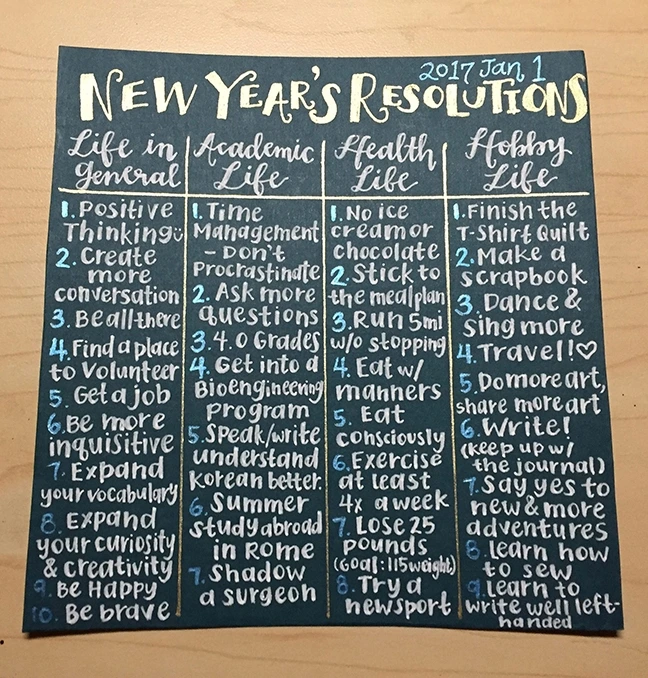 2017 Jan 1
NEW YEAR'S RESOLUTIONS
Life in
general
1. Positive
Thinking
2. Create
more
conversation
3. Be all there
4. Find a place
to Volunteer
5. Get a job
6. Be more
inquisitive
7. Expand
your vocabulary
8. Expand
your curiosity
& creativity
9. Be Happy
10. Be brave
Academic
Life
1. Time
Management
- Don't
Procrastinate
2. Ask more
questions
3. 4.0 Grades
4. Get into a
Bioengineering
program
5. Speak/write
understand
Korean better.
6. Summer
study abroad
in Rome
7. Shadow
a surgeon
Health
Life
1. No ice
cream or
chocolate
2. Stick to
the meal plan
3. Run 5mi
w/o stopping
4. Eat w/
manners
5. Eat
consciously
6. Exercise
at least
4x a week
7. Lose 25
pounds
(Goal: 115 weight)
8. Try a
new sport
Hobby
Life
1. Finish the
T-Shirt Quilt
2. Make a
scrapbook
3. Dance &
sing more
4. Travel!♡
5. Do more art,
share more art
6. Write!
(keep up w/
the journal)
7. Say yes to
new & more
adventures
8. Learn how
to sew
9. Learn to
write well left-
handed